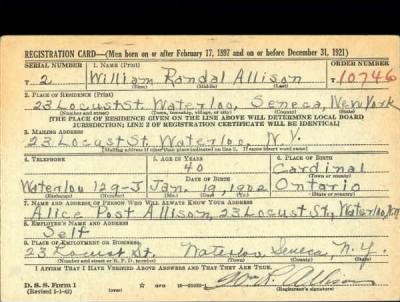 REGISTRATION CARD—(Men born on or after February 17, 1897 and on or before December 31, 1921)
SERIAL NUMBER 1. NAME (Print) ORDER NUMBER
T 2 William Randal Allison T10746
(First) (Middle) (Last)
2. PLACE OF RESIDENCE (Print)
23 Locust St. Waterloo, Seneca, New York
(Number and street) (Town, township, village, or city) (County) (State)
[THE PLACE OF RESIDENCE GIVEN ON THE LINE ABOVE WILL DETERMINE LOCAL BOARD
JURISDICTION; LINE 2 OF REGISTRATION CERTIFICATE WILL BE IDENTICAL]
3. MAILING ADDRESS
23 Locust St. Waterloo, N.Y.
[Mailing address if other than place indicated on line 2. If same insert word same]
4. TELEPHONE 5. AGE IN YEARS 6. PLACE OF BIRTH
40 Cardinal
DATE OF BIRTH (Town or county)
Waterloo 129-J Jan. 19, 1902 Ontario
(Exchange) (Number) (Mo.) (Day) (Yr.) (State or country)
7. NAME AND ADDRESS OF PERSON WHO WILL ALWAYS KNOW YOUR ADDRESS
Alice Post Allison, 23 Locust St., Waterloo, N.Y.
8. EMPLOYER'S NAME AND ADDRESS
Self
9. PLACE OF EMPLOYMENT OR BUSINESS
23 Locust St. Waterloo Seneca, N.Y.
(Number and street or R. F. D. number) (Town) (County) (State)
I AFFIRM THAT I HAVE VERIFIED ABOVE ANSWERS AND THAT THEY ARE TRUE.
D. S. S. Form 1
(Revised 1-1-42) (over)
Wm R. Allison